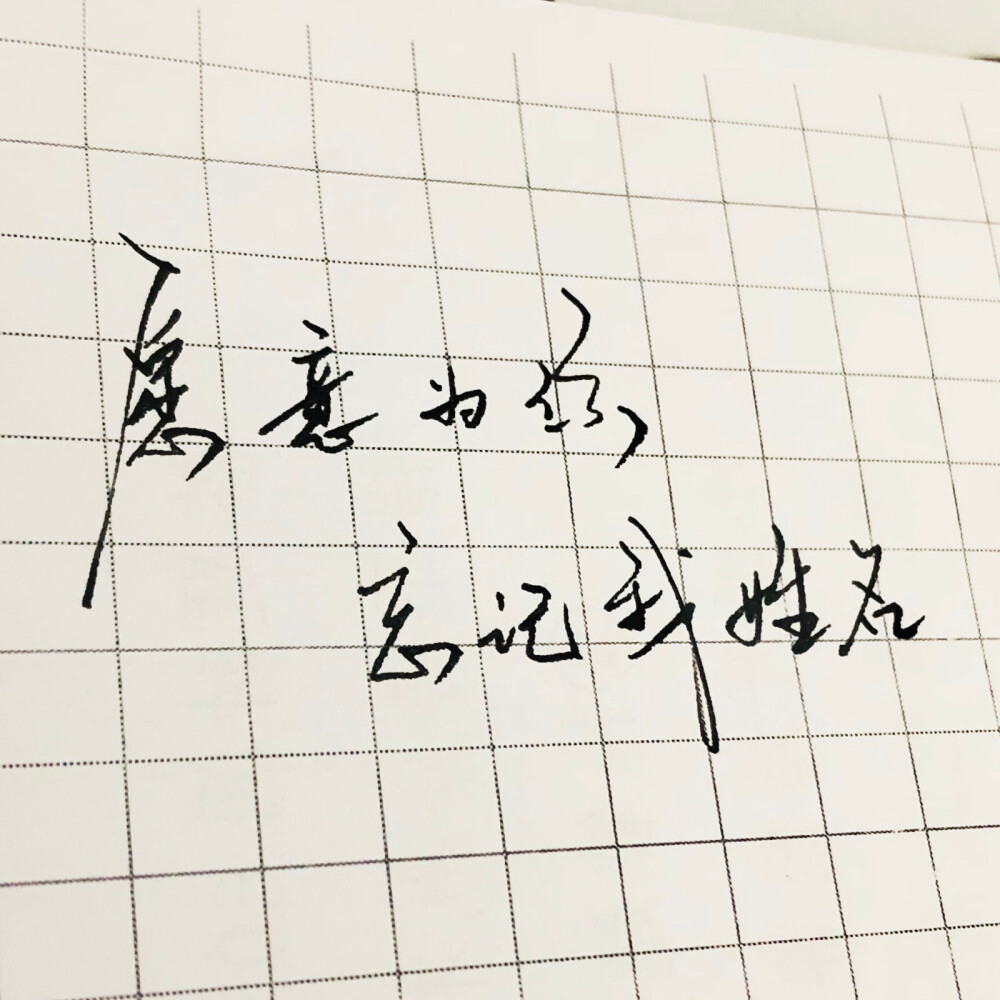 愿意为你，
忘记我姓名